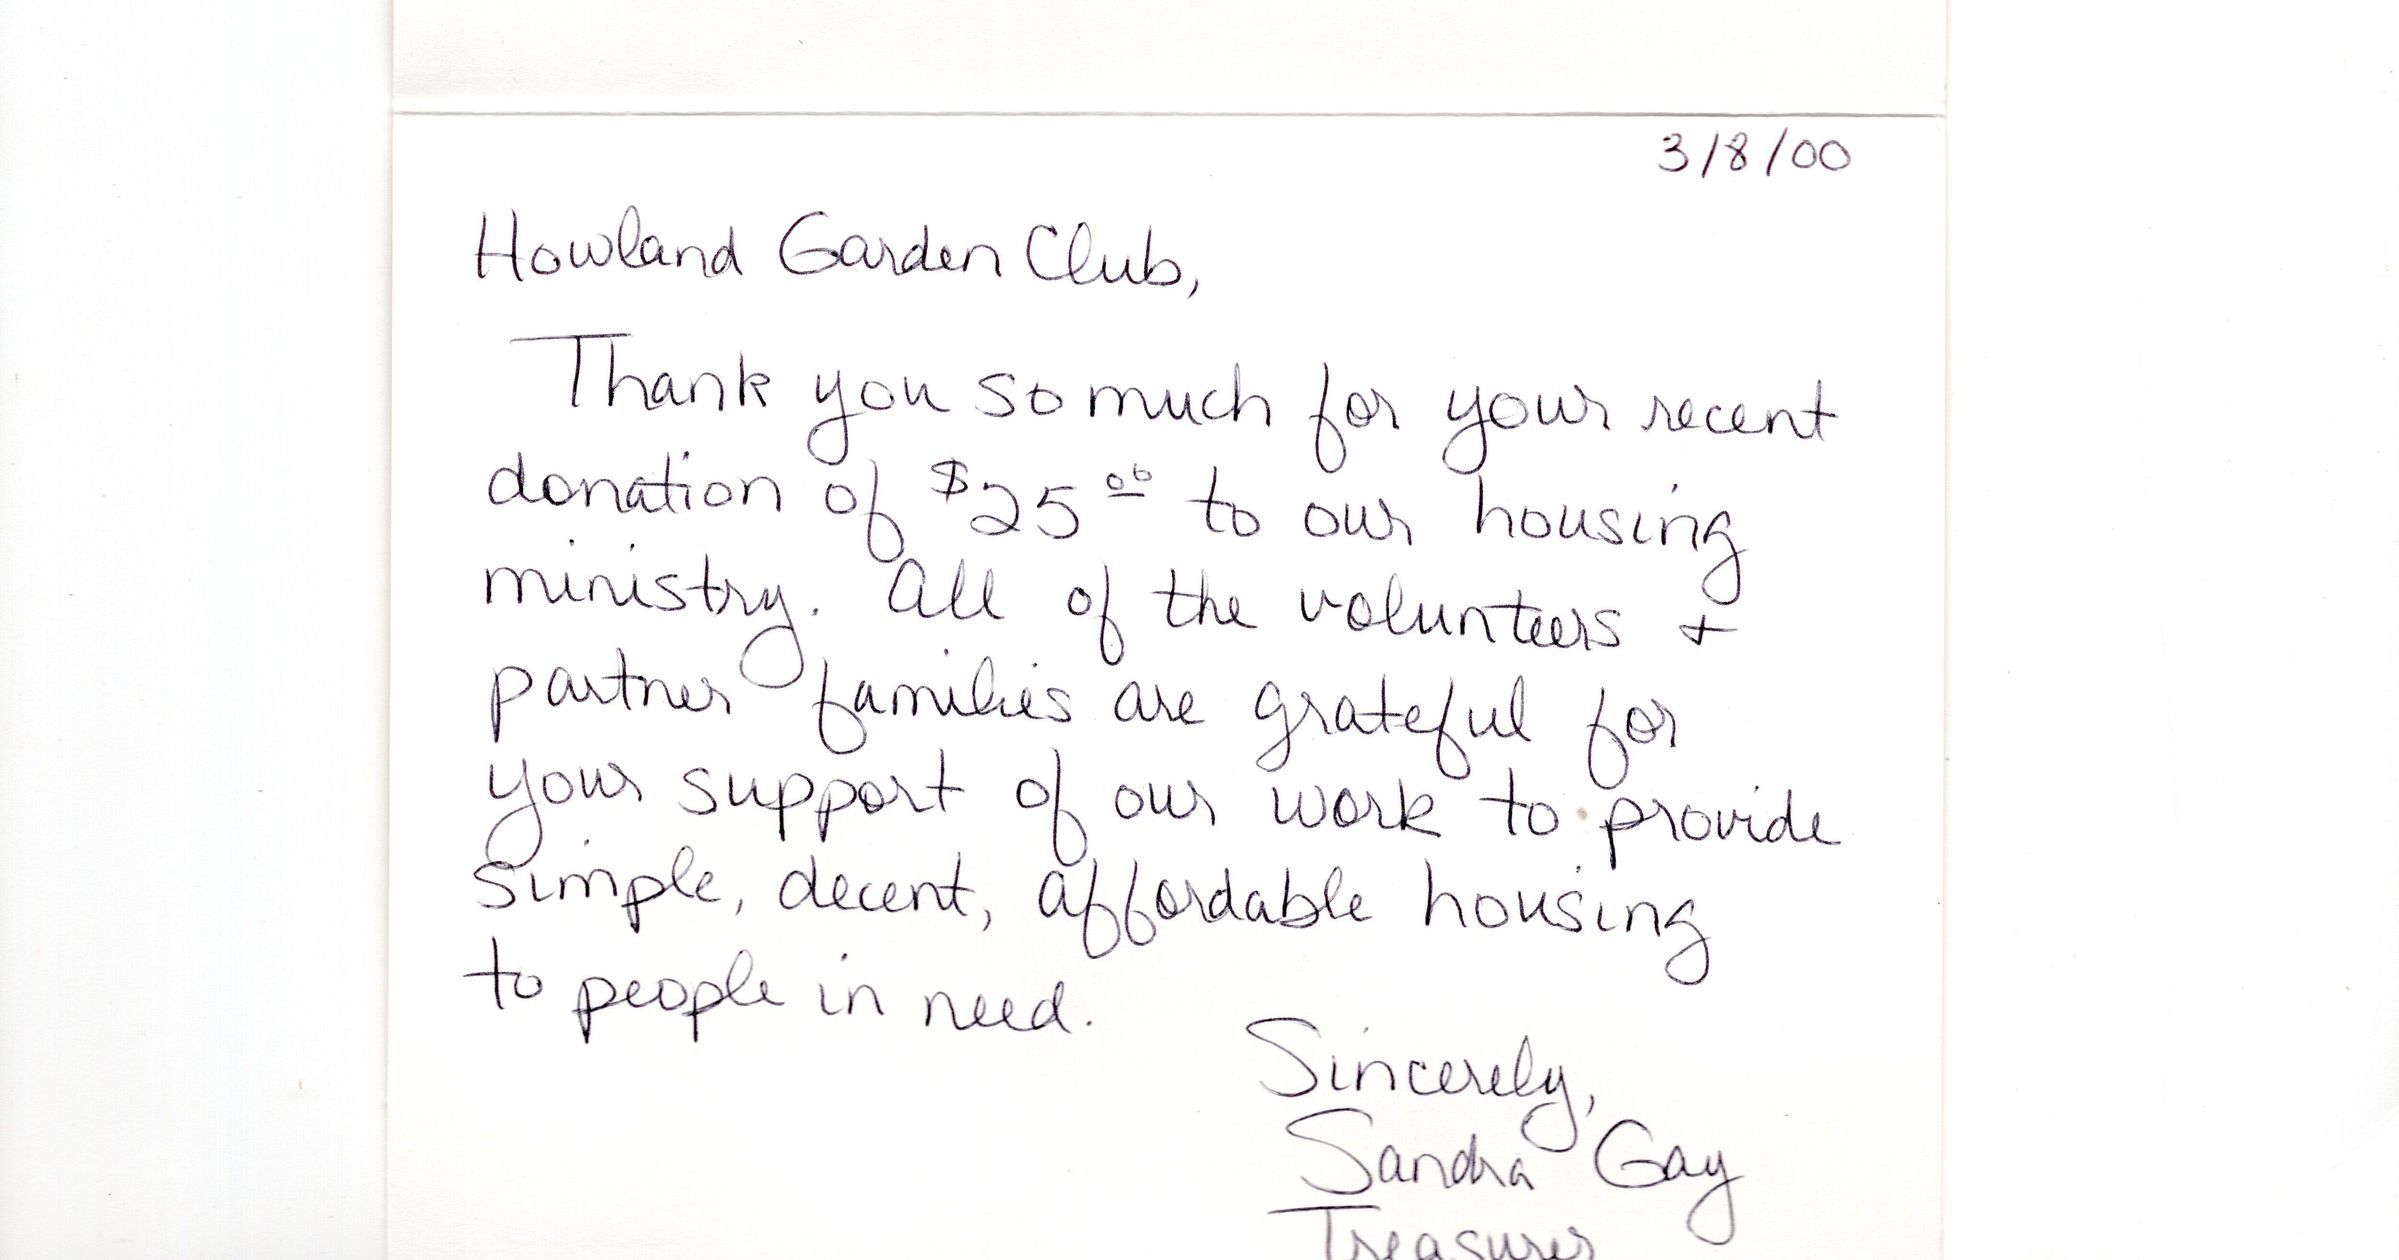 3/8/00
Howland Garden Club,
Thank you so much for your recent
donation of $25 00 to our housing
ministry. All of the volunteers +
partner families are grateful for
your support of our work to provide
simple, decent, affordable housing
to people in need.
Sincerely,
Sandra Gay
Treasurer